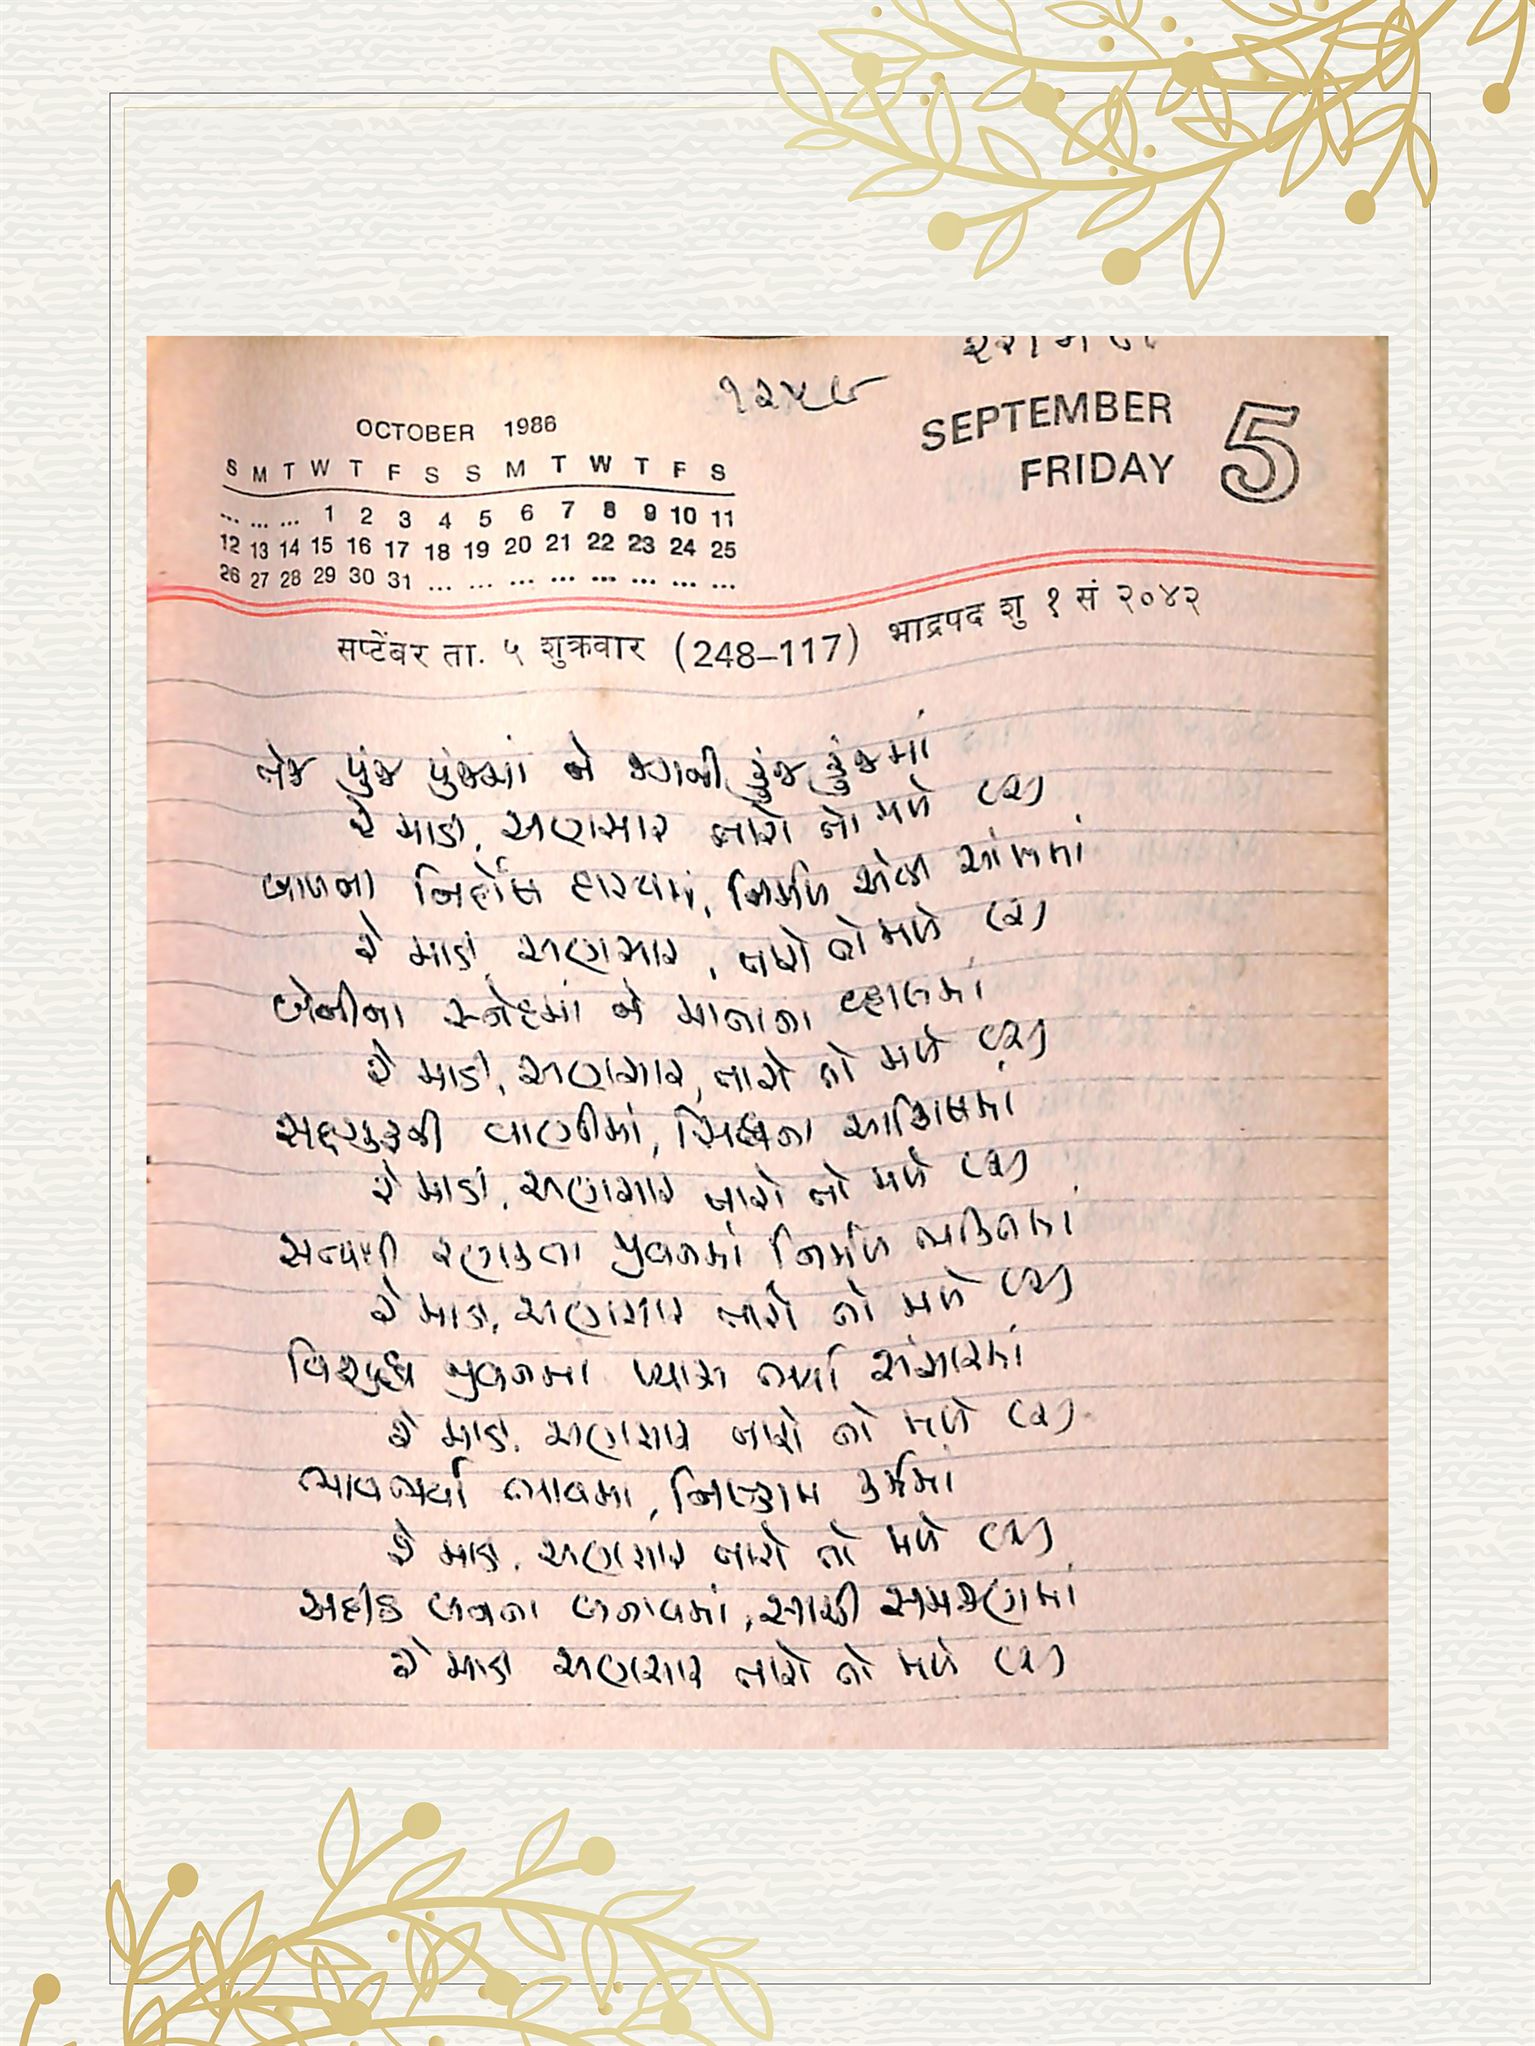 ૧૨૫૯
OCTOBER 1986
S M T W T F S S M T W T F S
... ... ... 1 2 3 4 5 6 7 8 9 10 11
12 13 14 15 16 17 18 19 20 21 22 23 24 25
26 27 28 29 30 31 ... ... ... ... ... ... ... ...
SEPTEMBER
FRIDAY
5
सप्टेंबर ता. ५ शुक्रवार (248–117) भाद्रपद शु १ सं २०४२
તેજ પુંજ પુંજમાં ને જગની કુંજ કુંજમાં
રે માડી, અણસાર તારો તો મળે (૨)
બાળના નિર્દોષ હાસ્યમાં, નિર્મળ એવી આંખમાં
રે માડી, અણસાર, તારો તો મળે (૨)
બેનીના સ્નેહમાં ને માતાના વ્હાલમાં
રે માડી, અણસાર, તારો તો મળે (૨)
સદ્દગુરુની વાણીમાં, સિદ્ધના આશિષમાં
રે માડી, અણસાર તારો તો મળે (૨)
સત્યથી રણકતા જીવનમાં નિર્મળ ભક્તિમાં
રે માડી, અણસાર તારો તો મળે (૨)
વિશુદ્ધ જીવનમાં પ્યાર ભર્યા સંસારમાં
રે માડી, અણસાર તારો તો મળે (૨)
ભાવભર્યા ભાવમાં, નિષ્કામ કર્મમાં
રે માડી, અણસાર તારો તો મળે (૨)
બનાવમાં, સાચી સમજણમાં
રે માડી અણસાર તારો તો મળે (૨)